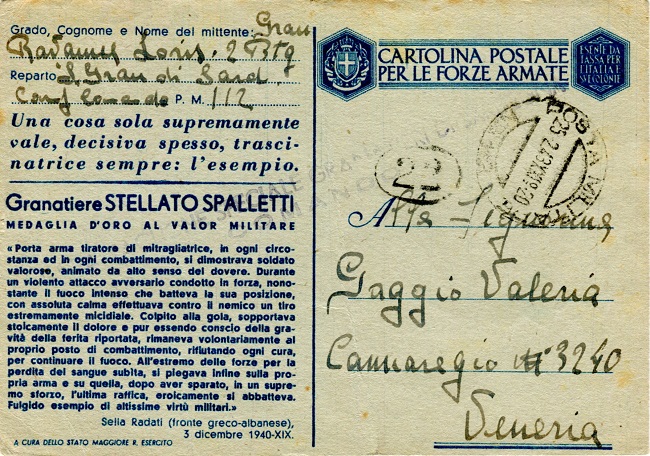 Grado, Cognome e Nome del mittente: Gran
Loris. 2 Btg
Reparto 3 Gran di Sard.
Comp Comando P. M. 112
Una cosa sola supremamente
vale, decisiva spesso, trasci-
natrice sempre: l'esempio.
Granatiere STELLATO SPALLETTI
MEDAGLIA D'ORO AL VALOR MILITARE
« Porta arma tiratore di mitragliatrice, in ogni circo-
stanza ed in ogni combattimento, si dimostrava soldato
valorose, animato da alto senso del dovere. Durante
un violento attacco avversario condotto in forza, nono-
stante il fuoco intenso che batteva la sua posizione,
con assoluta calma effettuava contro il nemico un tiro
estremamente micidiale. Colpito alla gola, sopportava
stoicamente il dolore e pur essendo conscio della gra-
vità della ferita riportata, rimaneva volontariamente al
proprio posto di combattimento, rifiutando ogni cura,
per continuare il fuoco. All'estremo delle forze per la
perdita del sangue subita, si piegava infine sulla pro-
pria arma e su quella, dopo aver sparato, in un supre-
mo sforzo, l'ultima raffica, eroicamente si abbatteva.
Fulgido esempio di altissime virtù militari.»
Sella Radati (fronte greco-albanese),
3 dicembre 1940-XIX.
A CURA DELLO STATO MAGGIORE R. ESERCITO
CARTOLINA POSTALE
PER LE FORZE ARMATE
ESENTE DA
TASSA PER
L'ITALIA E
SUE COLONIE
POSTA MIL
22
SPECIALE GRAN
Alla Signorina
Gaggio Valeria
Cannaregio N° 3240
Venezia